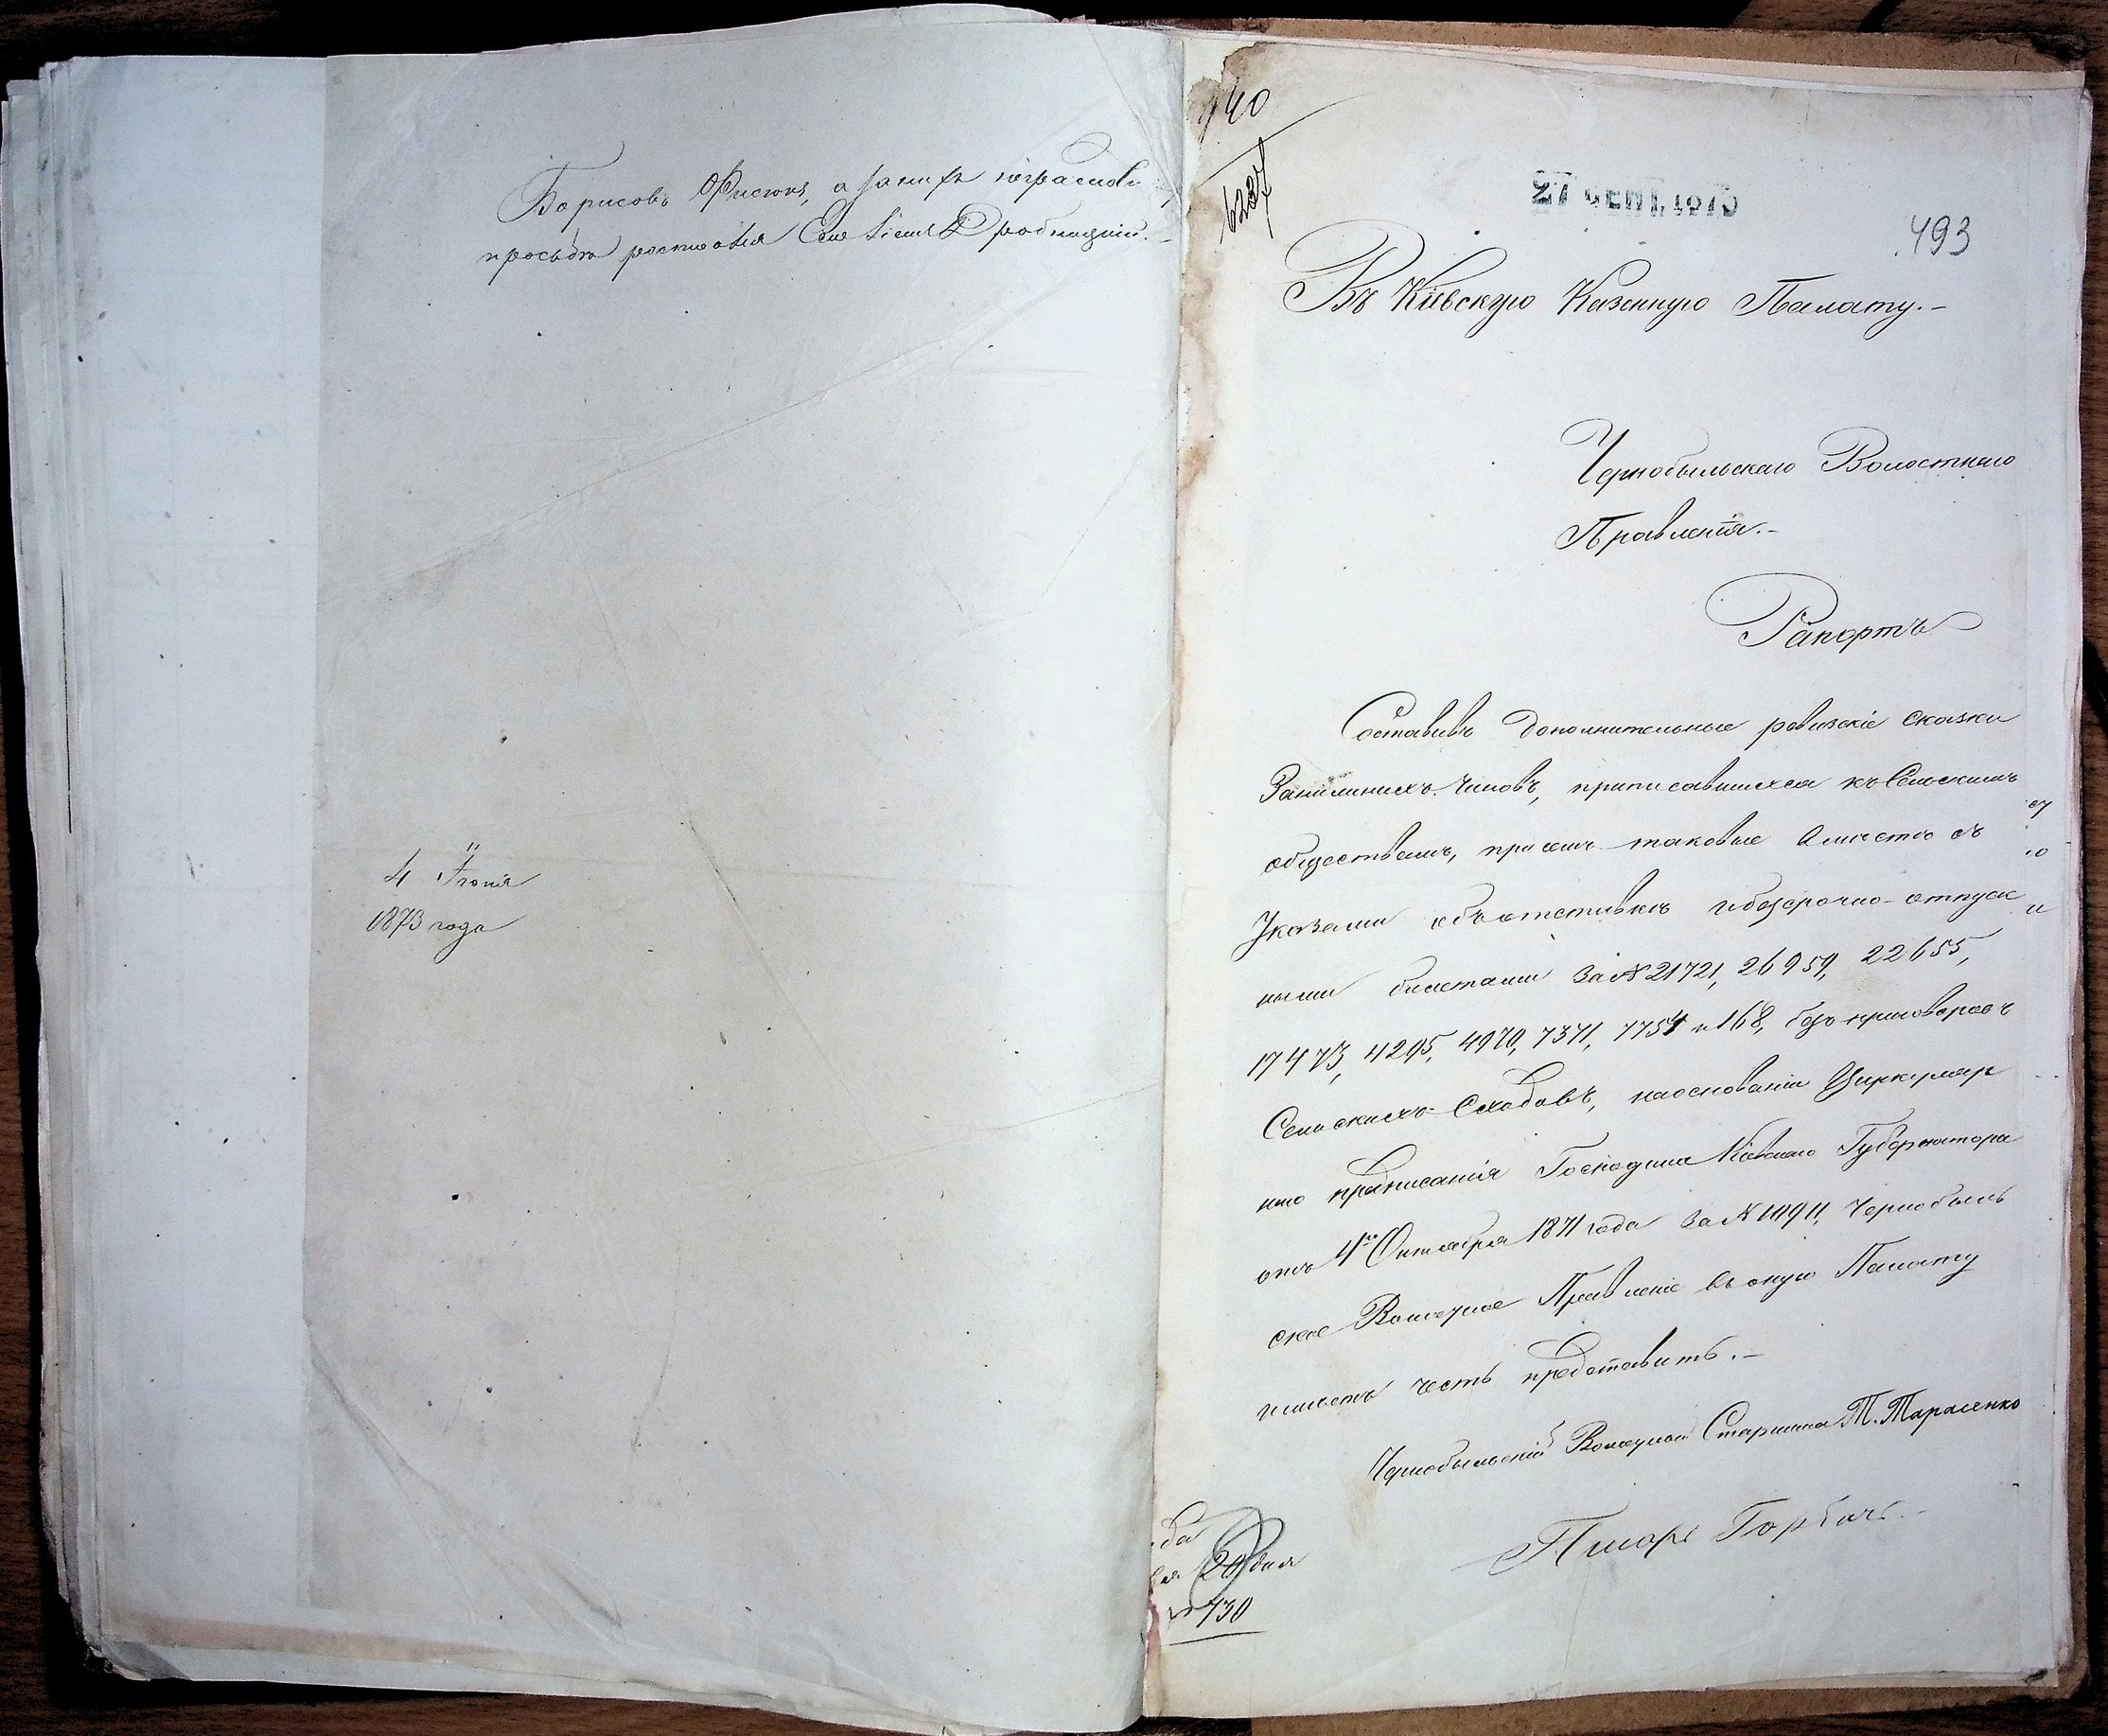 Борисовъ Фисюкъ, а за них неграмотн
просьбѣ росписался Дробницкій.
4 Іюня
1873 года
940
6287
27 СЕНТ. 1873
493
Въ Кіевскую Казенную Палату.-
Чернобыльскаго Волостнаго
Правленія.-
Рапортъ
Составивъ дополнительные ревизскіе сказки
Занижнихъ Чиновъ, приписавшихся къ Сельскимъ
обществамъ, при семъ таковые вмѣстѣ съ
Указами объ отставкѣ и безсрочно-отпуск
ными билетами За № 21721, 26959, 22655,
17473, 4295, 4970, 7371, 7754 и 168, безъ приговоровъ
Сельскихъ Сходовъ, на основаніи Циркуляр
наго предписанія Господина Кіевскаго Губернатора
отъ 4го Октября 1871 года За № 10911, Чернобыль
ское Волостное Правленіе въ оную Палату
имѣетъ честь представить.-
Чернобыльскій Волостной Старшина Т. Тарасенко
Писарь Горбачъ.-
да
20 дня
№ 730